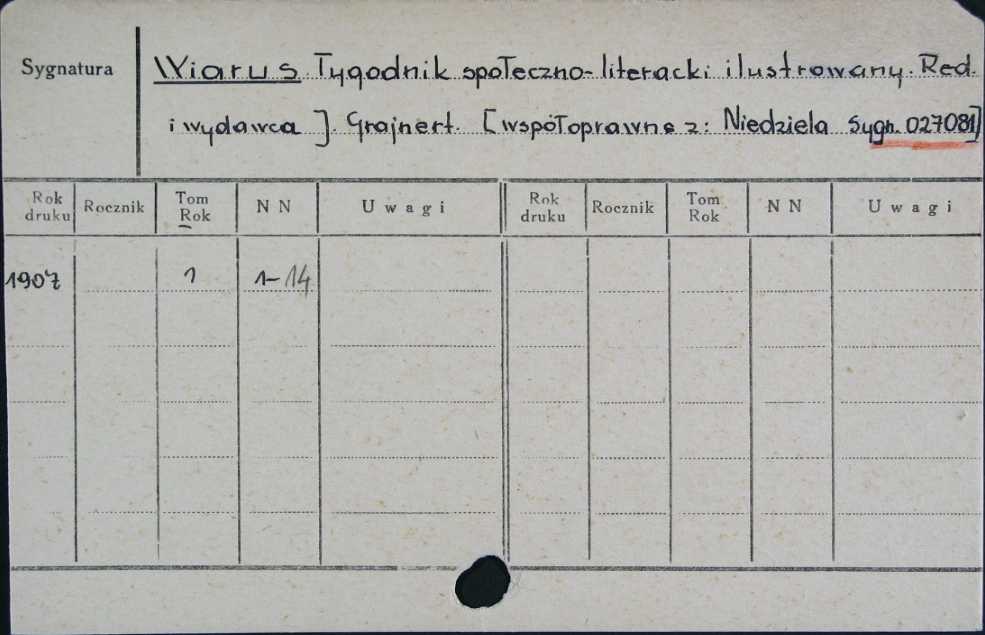 Sygnatura
Wiarus Tygodnik społeczno-literacki ilustrowany. Red.
i wydawca J. Grajnert. [współoprawne z: Niedziela Sygn. 027081]
Rok druku Rocznik Tom Rok N N Uwagi Rok druku Rocznik Tom Rok N N Uwagi
1907 1 1-14